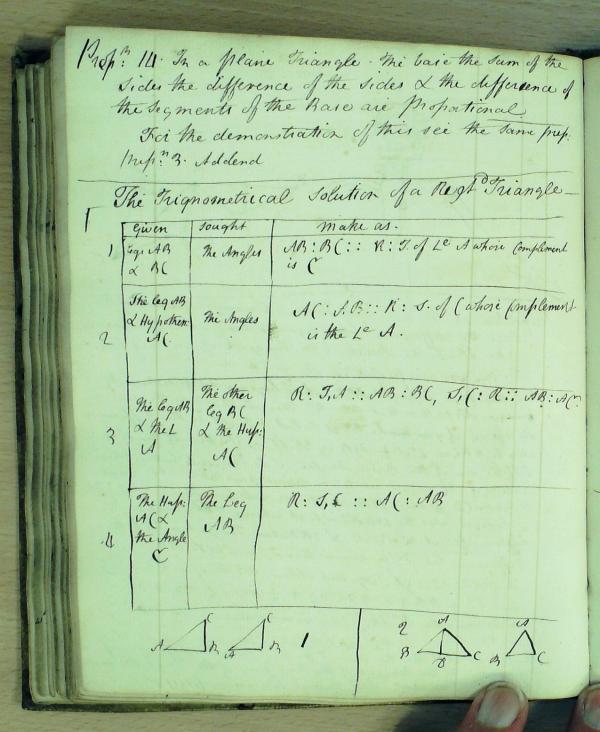 Propn. 14. In a plane Triangle the base the sum of the
sides the difference of the sides & the difference of
the segments of the Base are Proportional
For the demonstration of this see the same prep.
Propn. 3. Addend
The Trignometrical Solution of a Rigt.d Triangle
1
Given
Sought
make as.
1
Legs AB
& BC
The Angles
AB : BC :: R : T. of Le A whose complement
is C
2
The leg AB
& Hypothen:
AC
The Angles
AC : AB :: R : S. of C whose Complement
is the Le A.
3
The leg AB
& the L
A
The other
leg BC
& the Hyp:
AC
R : T, A :: AB : BC, S, C : R :: AB : AC
4
The Hyp:
AC &
the Angle
C
The Leg
AB
R : S, C :: AC : AB
A C B
A C B
1
2
B A D C
B A C